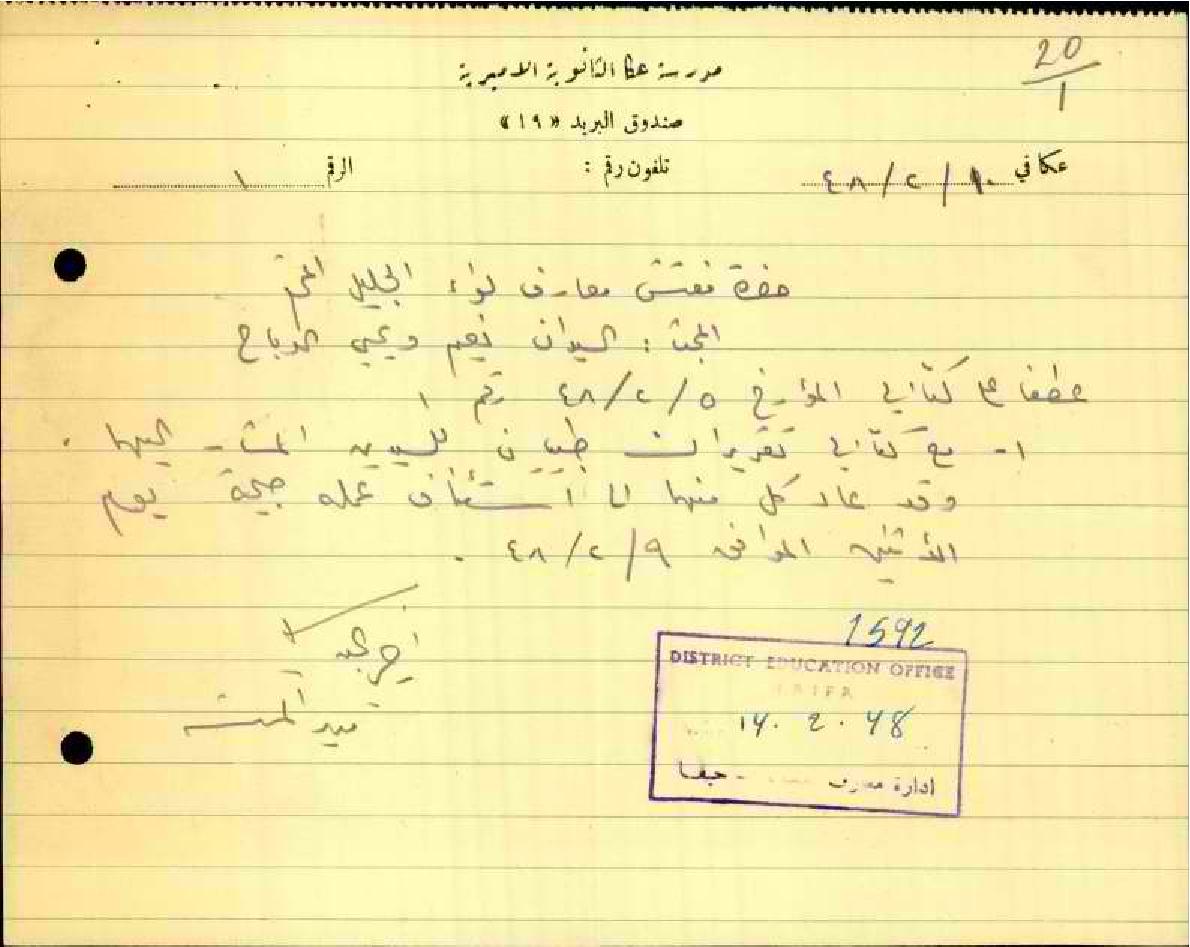 20/1
مدرسة عكا الثانوية الاميرية
صندوق البريد «١٩»
عكا في ١٠/٢/٤٨ تلفون رقم : الرقم ١
حضرة مفتش معارف لواء الجليل المحترم
المبحث : السيدان نعيم ويحيى الدباغ
عطفا على كتابي المؤرخ ٥/٢/٤٨ رقم ١
١- مع كتابي تقريران طبيان للسيدين المشار اليهما .
وقد عاد كل منهما الى استئناف عمله صبيحة يوم
الاثنين الموافق ٩/٢/٤٨ .
مدير المدرسة
1592
DISTRICT EDUCATION OFFICE
HAIFA
14. 2. 48
ادارة معارف - حيفا